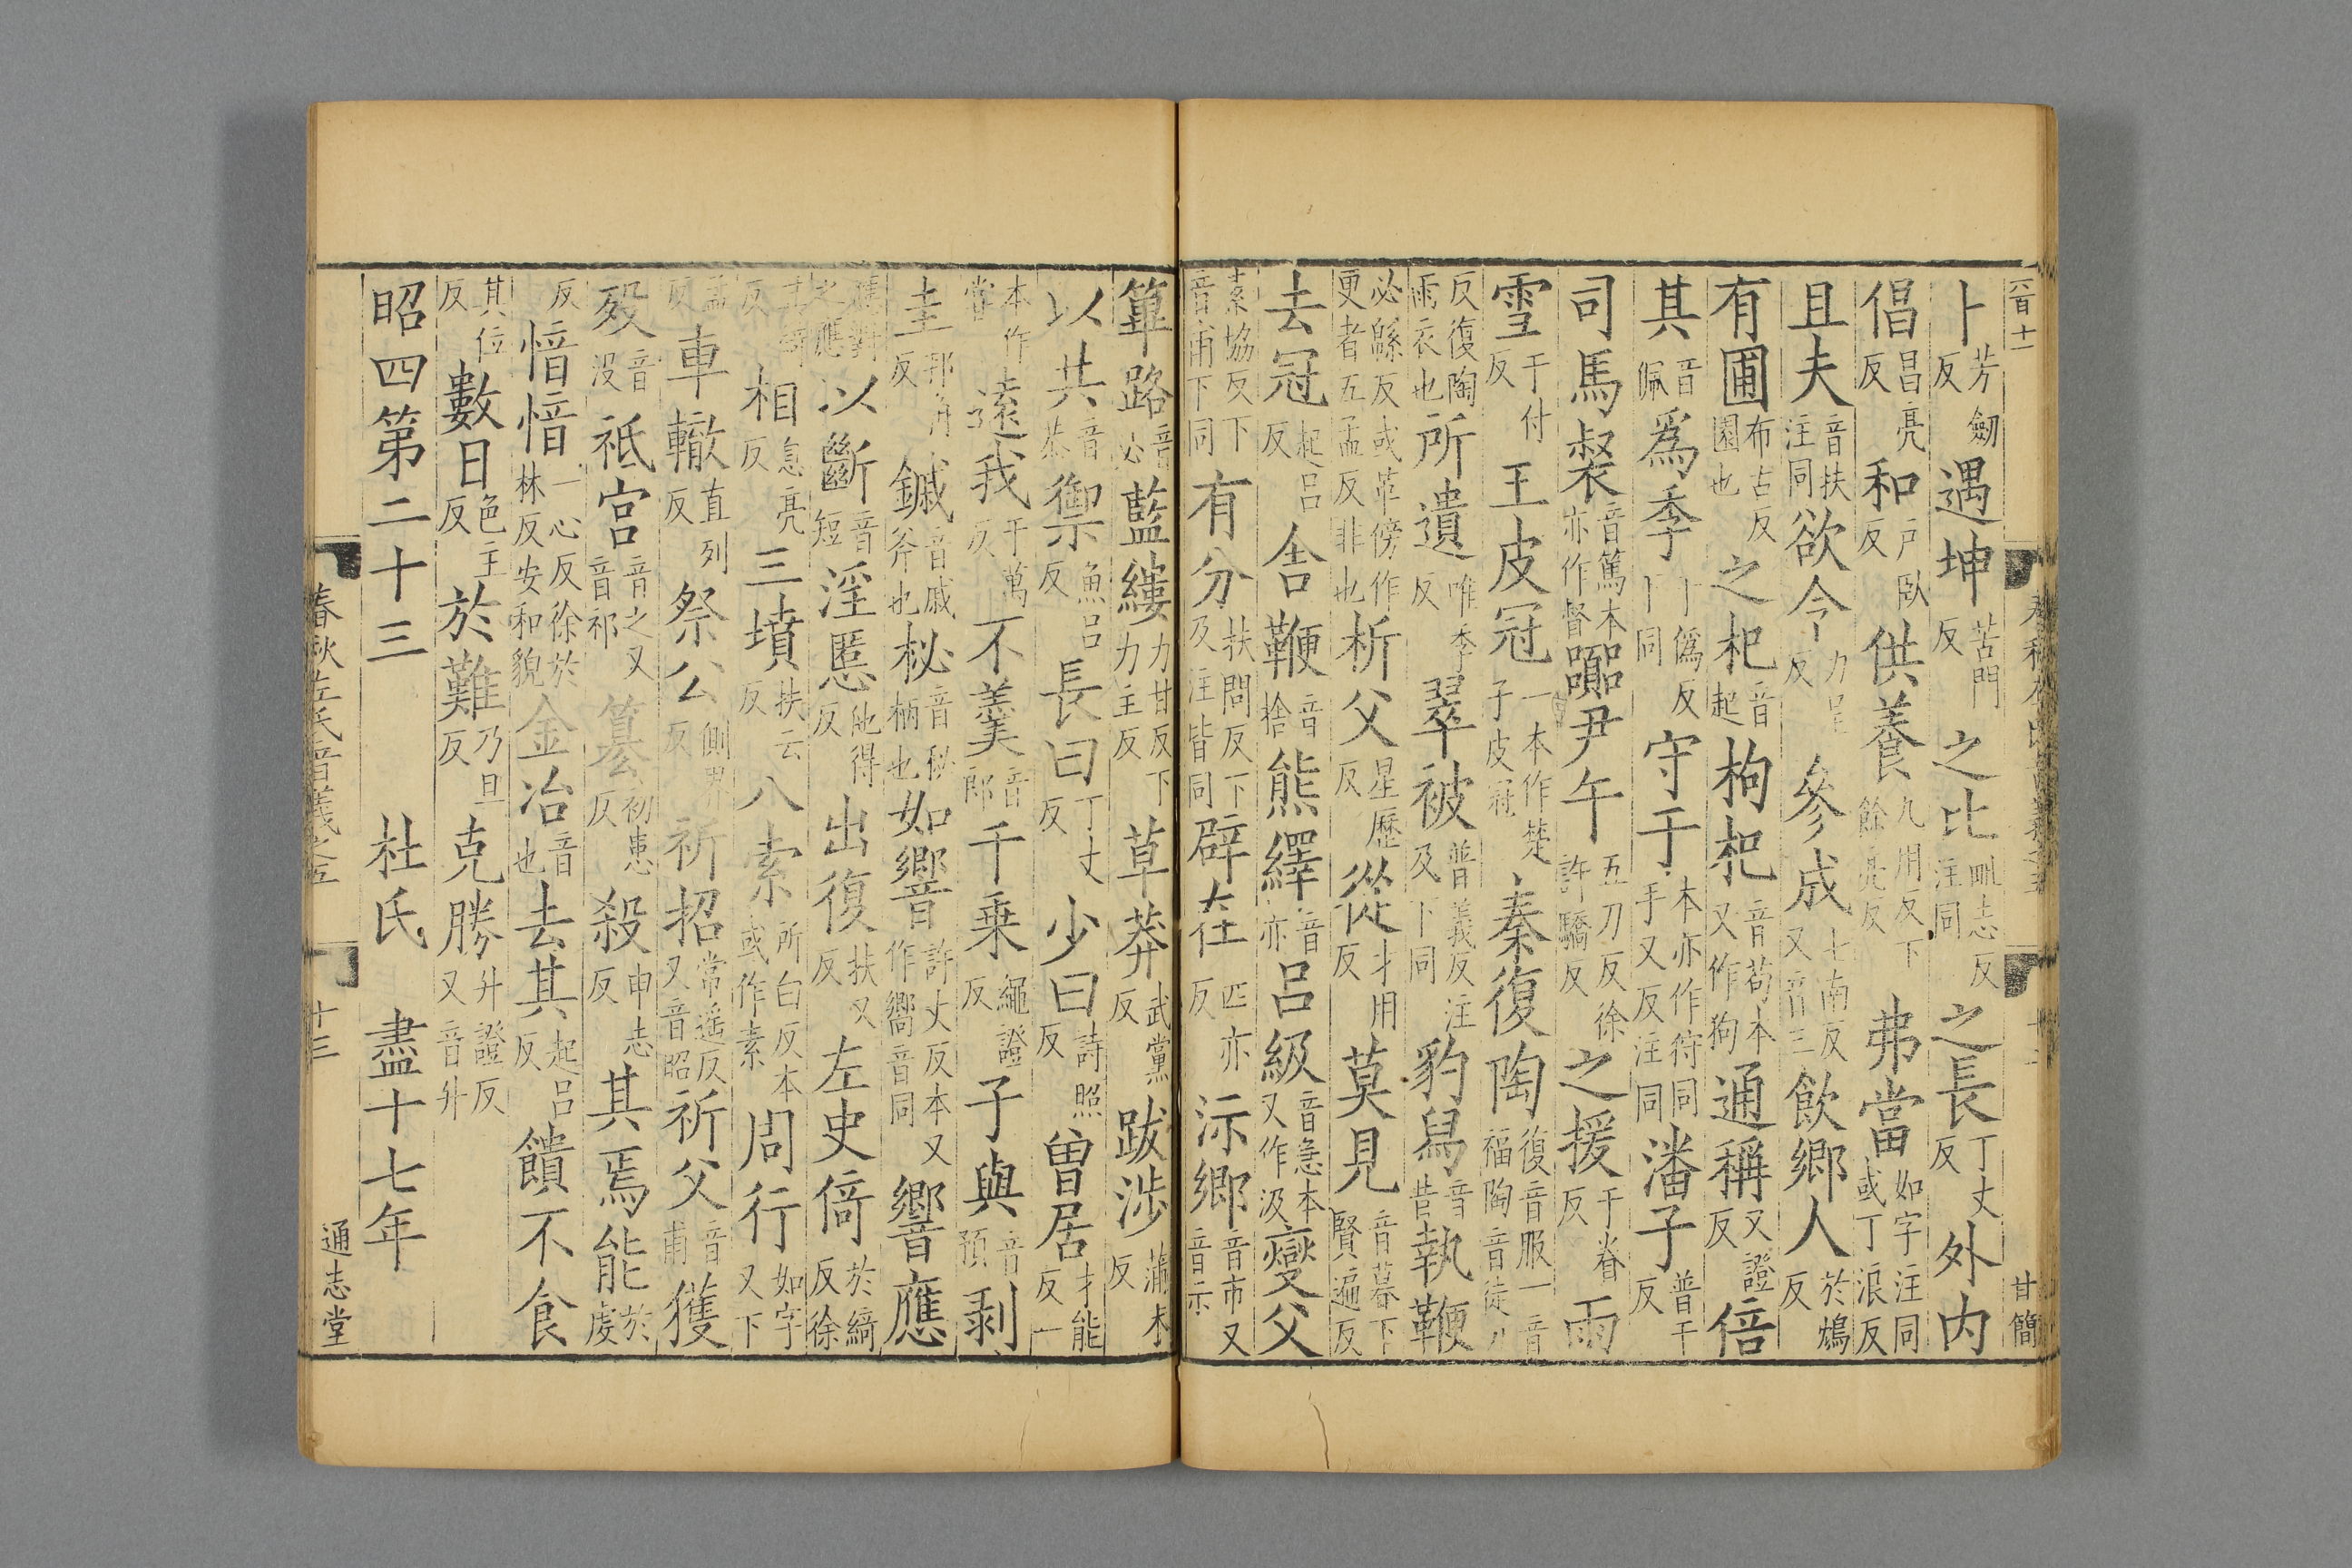 六百十一 甘簡
卜芳劒反遇坤苦門反之比毗志反注同之長丁丈反外内
倡昌亮反和戸臥反供養九用反下餘亮反弗當如字注同或丁浪反
且夫音扶注同欲令力呈反參成七南反又音三飲鄉人於鴆反
有圃布古反園也之杞音起枸杞音苟本又作狗通稱又證反倍
其音佩爲季于僞反下同守于本亦作狩同手又反注同潘子普干反
司馬裻音篤本亦作督嚻尹午五刀反徐許驕反之援于眷反雨
雪于付反王皮冠一本作楚子皮冠秦復陶復音服一音福陶音徒刀
反復陶雨衣也所遺唯季反翠被普義反注及下同豹舄音昔執鞭
必緜反或革傍作更者五孟反非也析父星歷反從才用反莫見音暮下賢遍反
去冠起吕反舍鞭音捨熊繹音亦吕級音急本又作汲燮父
素協反下音甫下同有分扶問反下及注皆同辟在匹亦反沶鄉音市又音示
篳路音必藍縷力甘反下力主反草莽武黨反跋涉蒲末反
以共音恭禦魚吕反長曰丁丈反少曰詩照反曾居才能反一
本作嘗遠我于萬反不羹音郎千乗繩證反子與音預剥
圭邦角反鏚音戚斧也柲音祕柄也如響許丈反本又作嚮音同響應
應對之應以斷音短淫慝他得反出復扶又反左史倚於綺反徐
其綺反相息亮反三墳扶云反八索所白反本或作素周行如字又下
孟反車轍直列反祭公側界反祈招常遥反又音昭祈父音甫獲
殁音没祗宫音之又音祁簒初患反殺申志反其焉能於虔
反愔愔一心反徐於林反安和貌金冶音也去其起吕反饋不食
其位反數日色主反於難乃旦反克勝升證反又音升
昭四第二十三 杜氏 盡十七年
春秋左氏音義之五 十三 通志堂